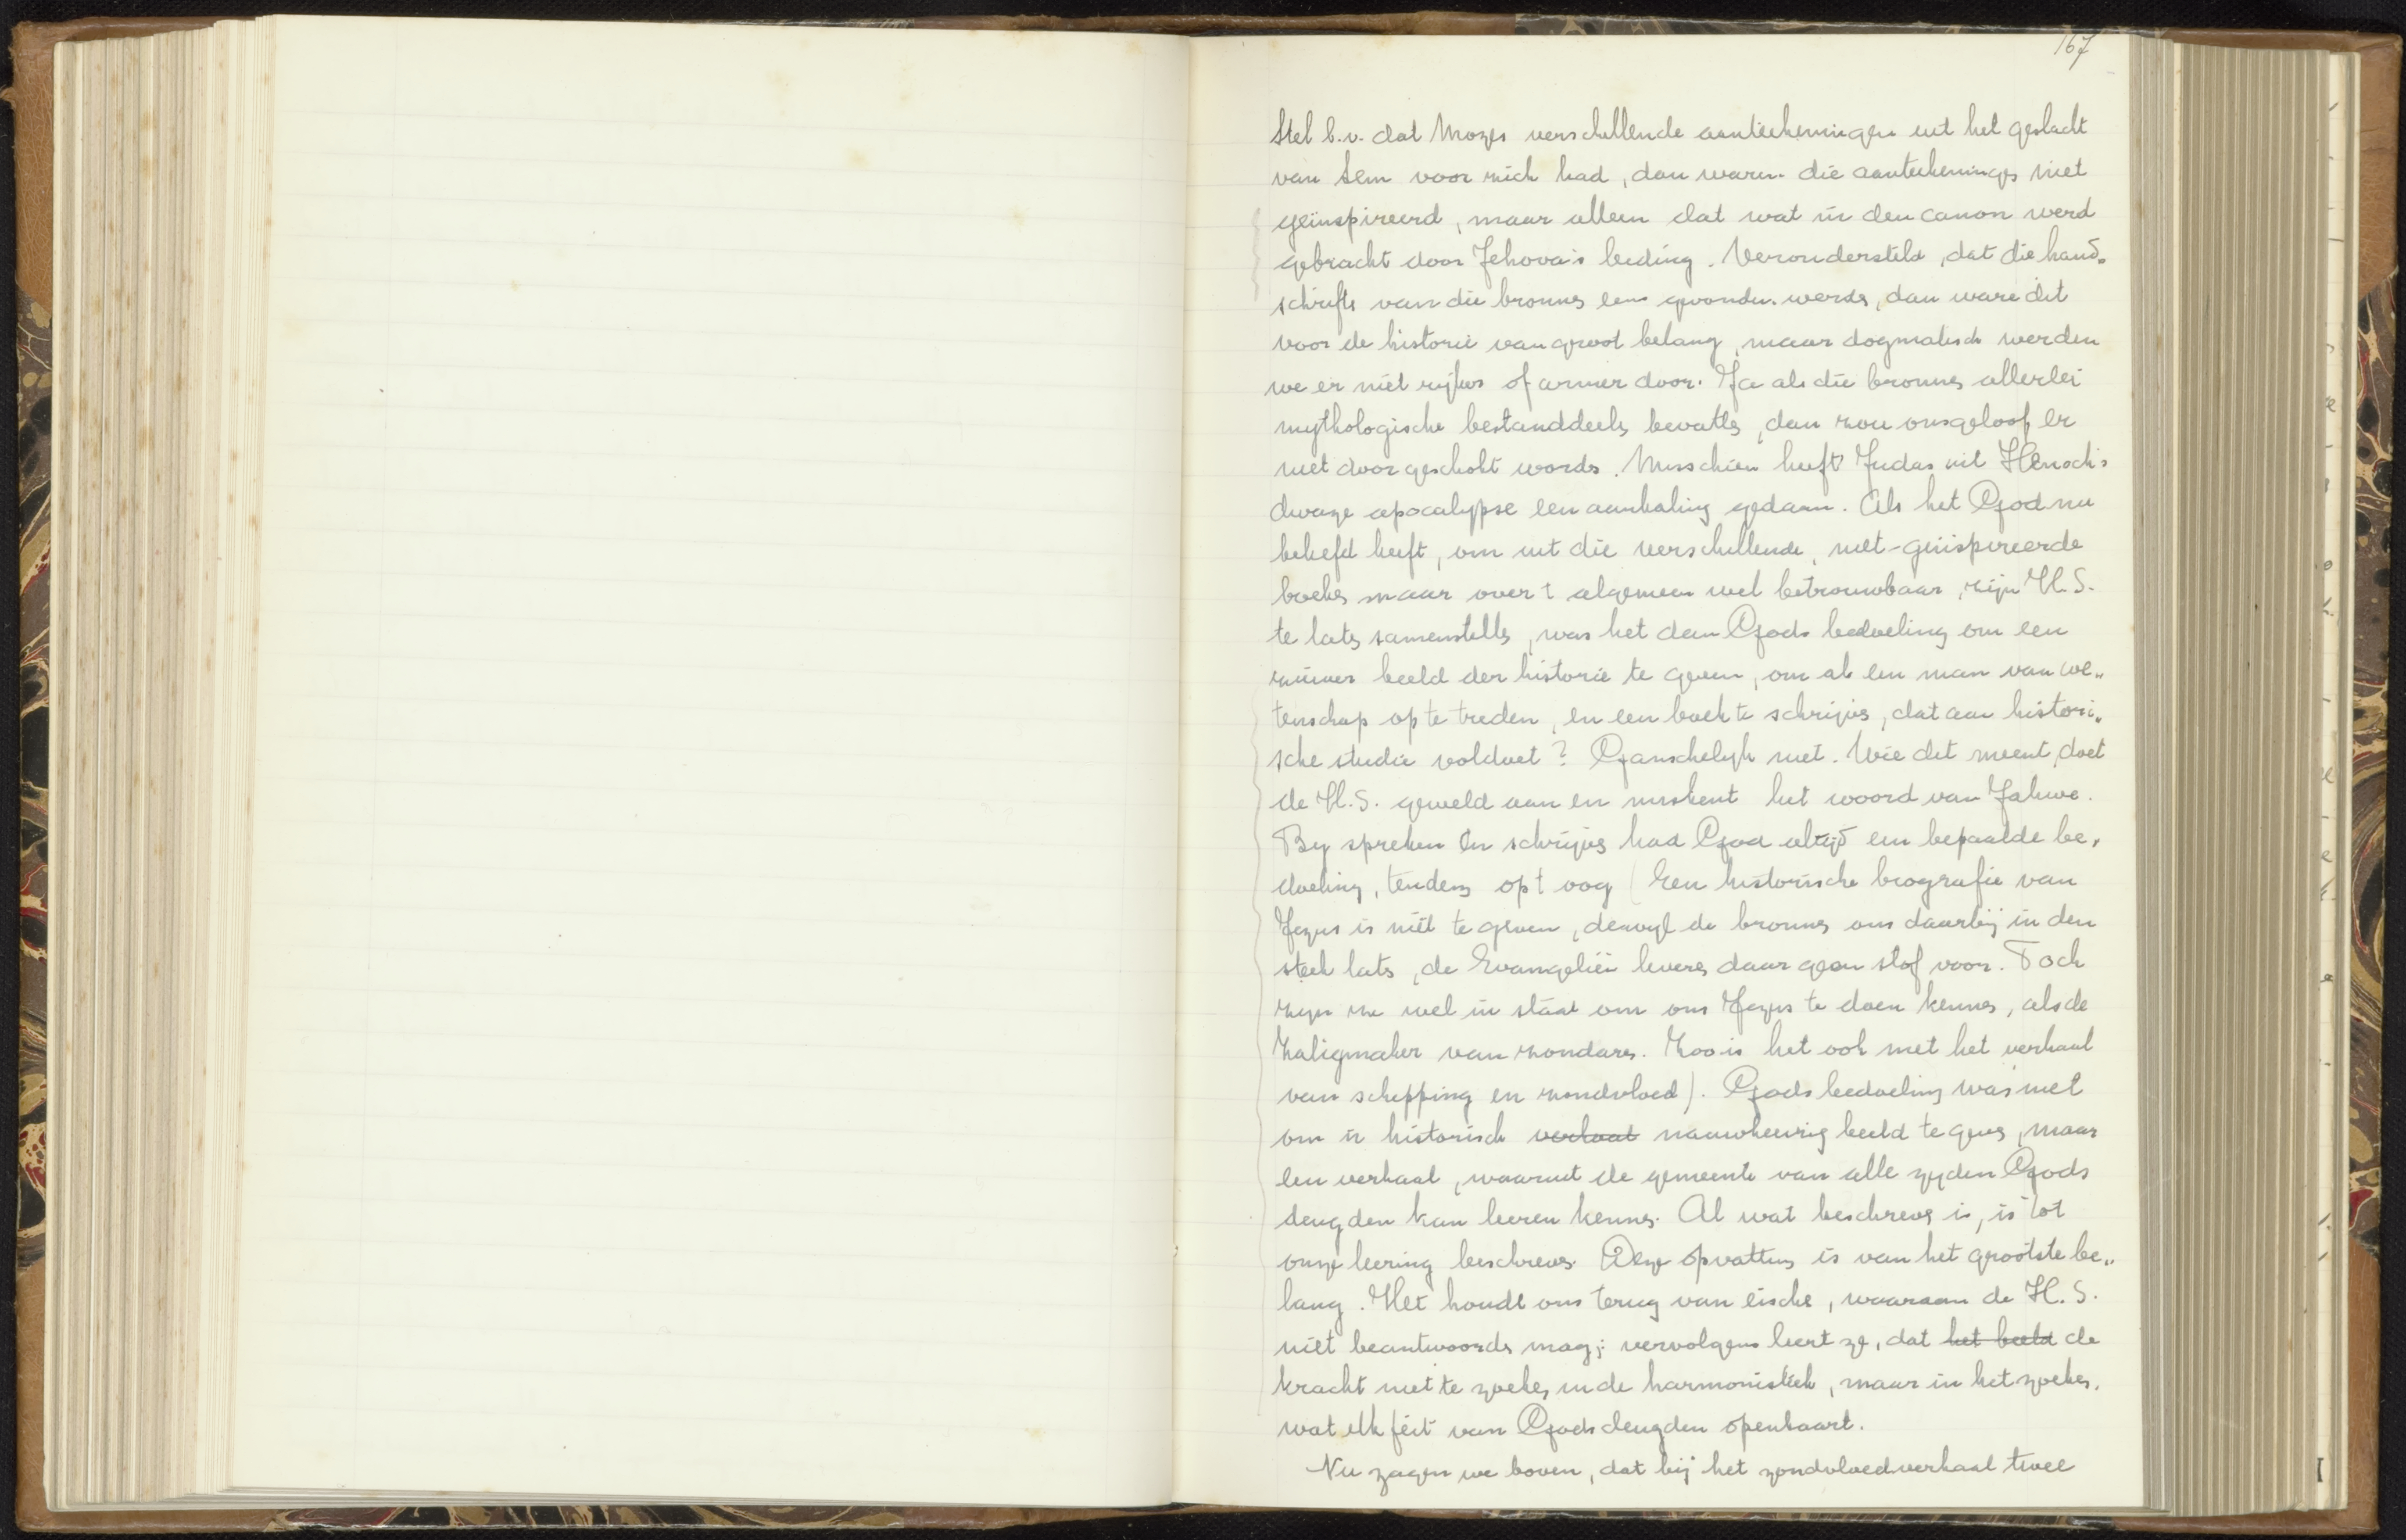 167
Stel b.v. dat Mozes verschillende aanteekeningen uit het geslacht
van Sem voor zich had, dan waren die aanteekeningen niet
geïnspireerd, maar alleen dat wat in den canon werd
gebracht door Jehova's leiding. Verondersteld, dat die hand„
schriften van die bronnen eens gevonden werden, dan ware dit
voor de historie van groot belang, maar dogmatisch werden
we er niet rijker of armer door. Ja als die bronnen allerlei
mythologische bestanddeelen bevatten, dan zou ons geloof er
niet door geschokt worden. Misschien heeft Judas uit Henoch's
dwaze apocalypse een aanhaling gedaan. Als het God nu
beliefd heeft, om uit die verschillende, niet-geïnspireerde
boeken maar over 't algemeen wel betrouwbaar, zijn H.S.
te laten samenstellen, was het dan Gods bedoeling om een
zuiver beeld der historie te geven, om als een man van we„
tenschap op te treden, en een boek te schrijven, dat aan histori„
sche studie voldoet? Ganschelijk niet. Wie dit meent, doet
de H.S. geweld aan en miskent het woord van Jahwe.
By spreken en schrijven had God altijd een bepaalde be„
doeling, tendenz op 't oog (Een historische biografie van
Jezus is niet te geven, dewijl de bronnen ons daarbij in den
steek laten, de Evangeliën leveren daar geen stof voor. Toch
zijn ze wel in staat om ons Jezus te doen kennen, als de
Zaligmaker van zondaren. Zoo is het ook met het verhaal
van schepping en zondvloed). Gods bedoeling was niet
om 'n historisch verhaal nauwkeurig beeld te geven, maar
een verhaal, waaruit de gemeente van alle zyden Gods
deugden kan leeren kennen. Al wat beschreven is, is tot
onze leering beschreven. Deze opvatting is van het grootste be„
lang. Het houdt ons terug van eischen, waaraan de H.S.
niet beantwoorden mag; vervolgens leert ze, dat het beeld de
kracht niet te zoeken in de harmonistiek, maar in het zoeken,
wat elk feit van Gods deugden openbaart.
Nu zagen we boven, dat bij het zondvloedverhaal twee